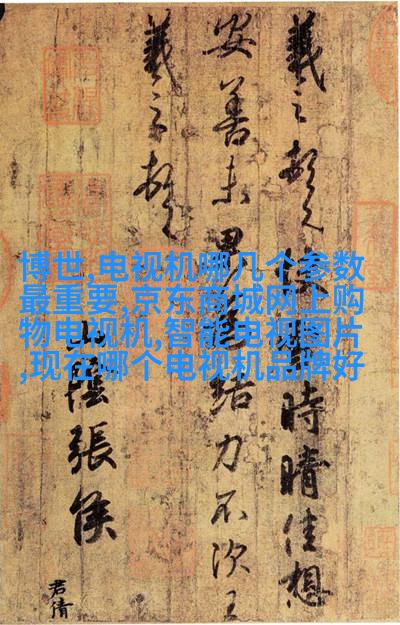 博世,电视机哪几个参数
最重要,京东商城网上购
物电视机,智能电视图片
,现在哪个电视机品牌好
羲之頓首快時晴佳想
安善未果為結力不次王
羲之頓首
山陰張侯
君倩